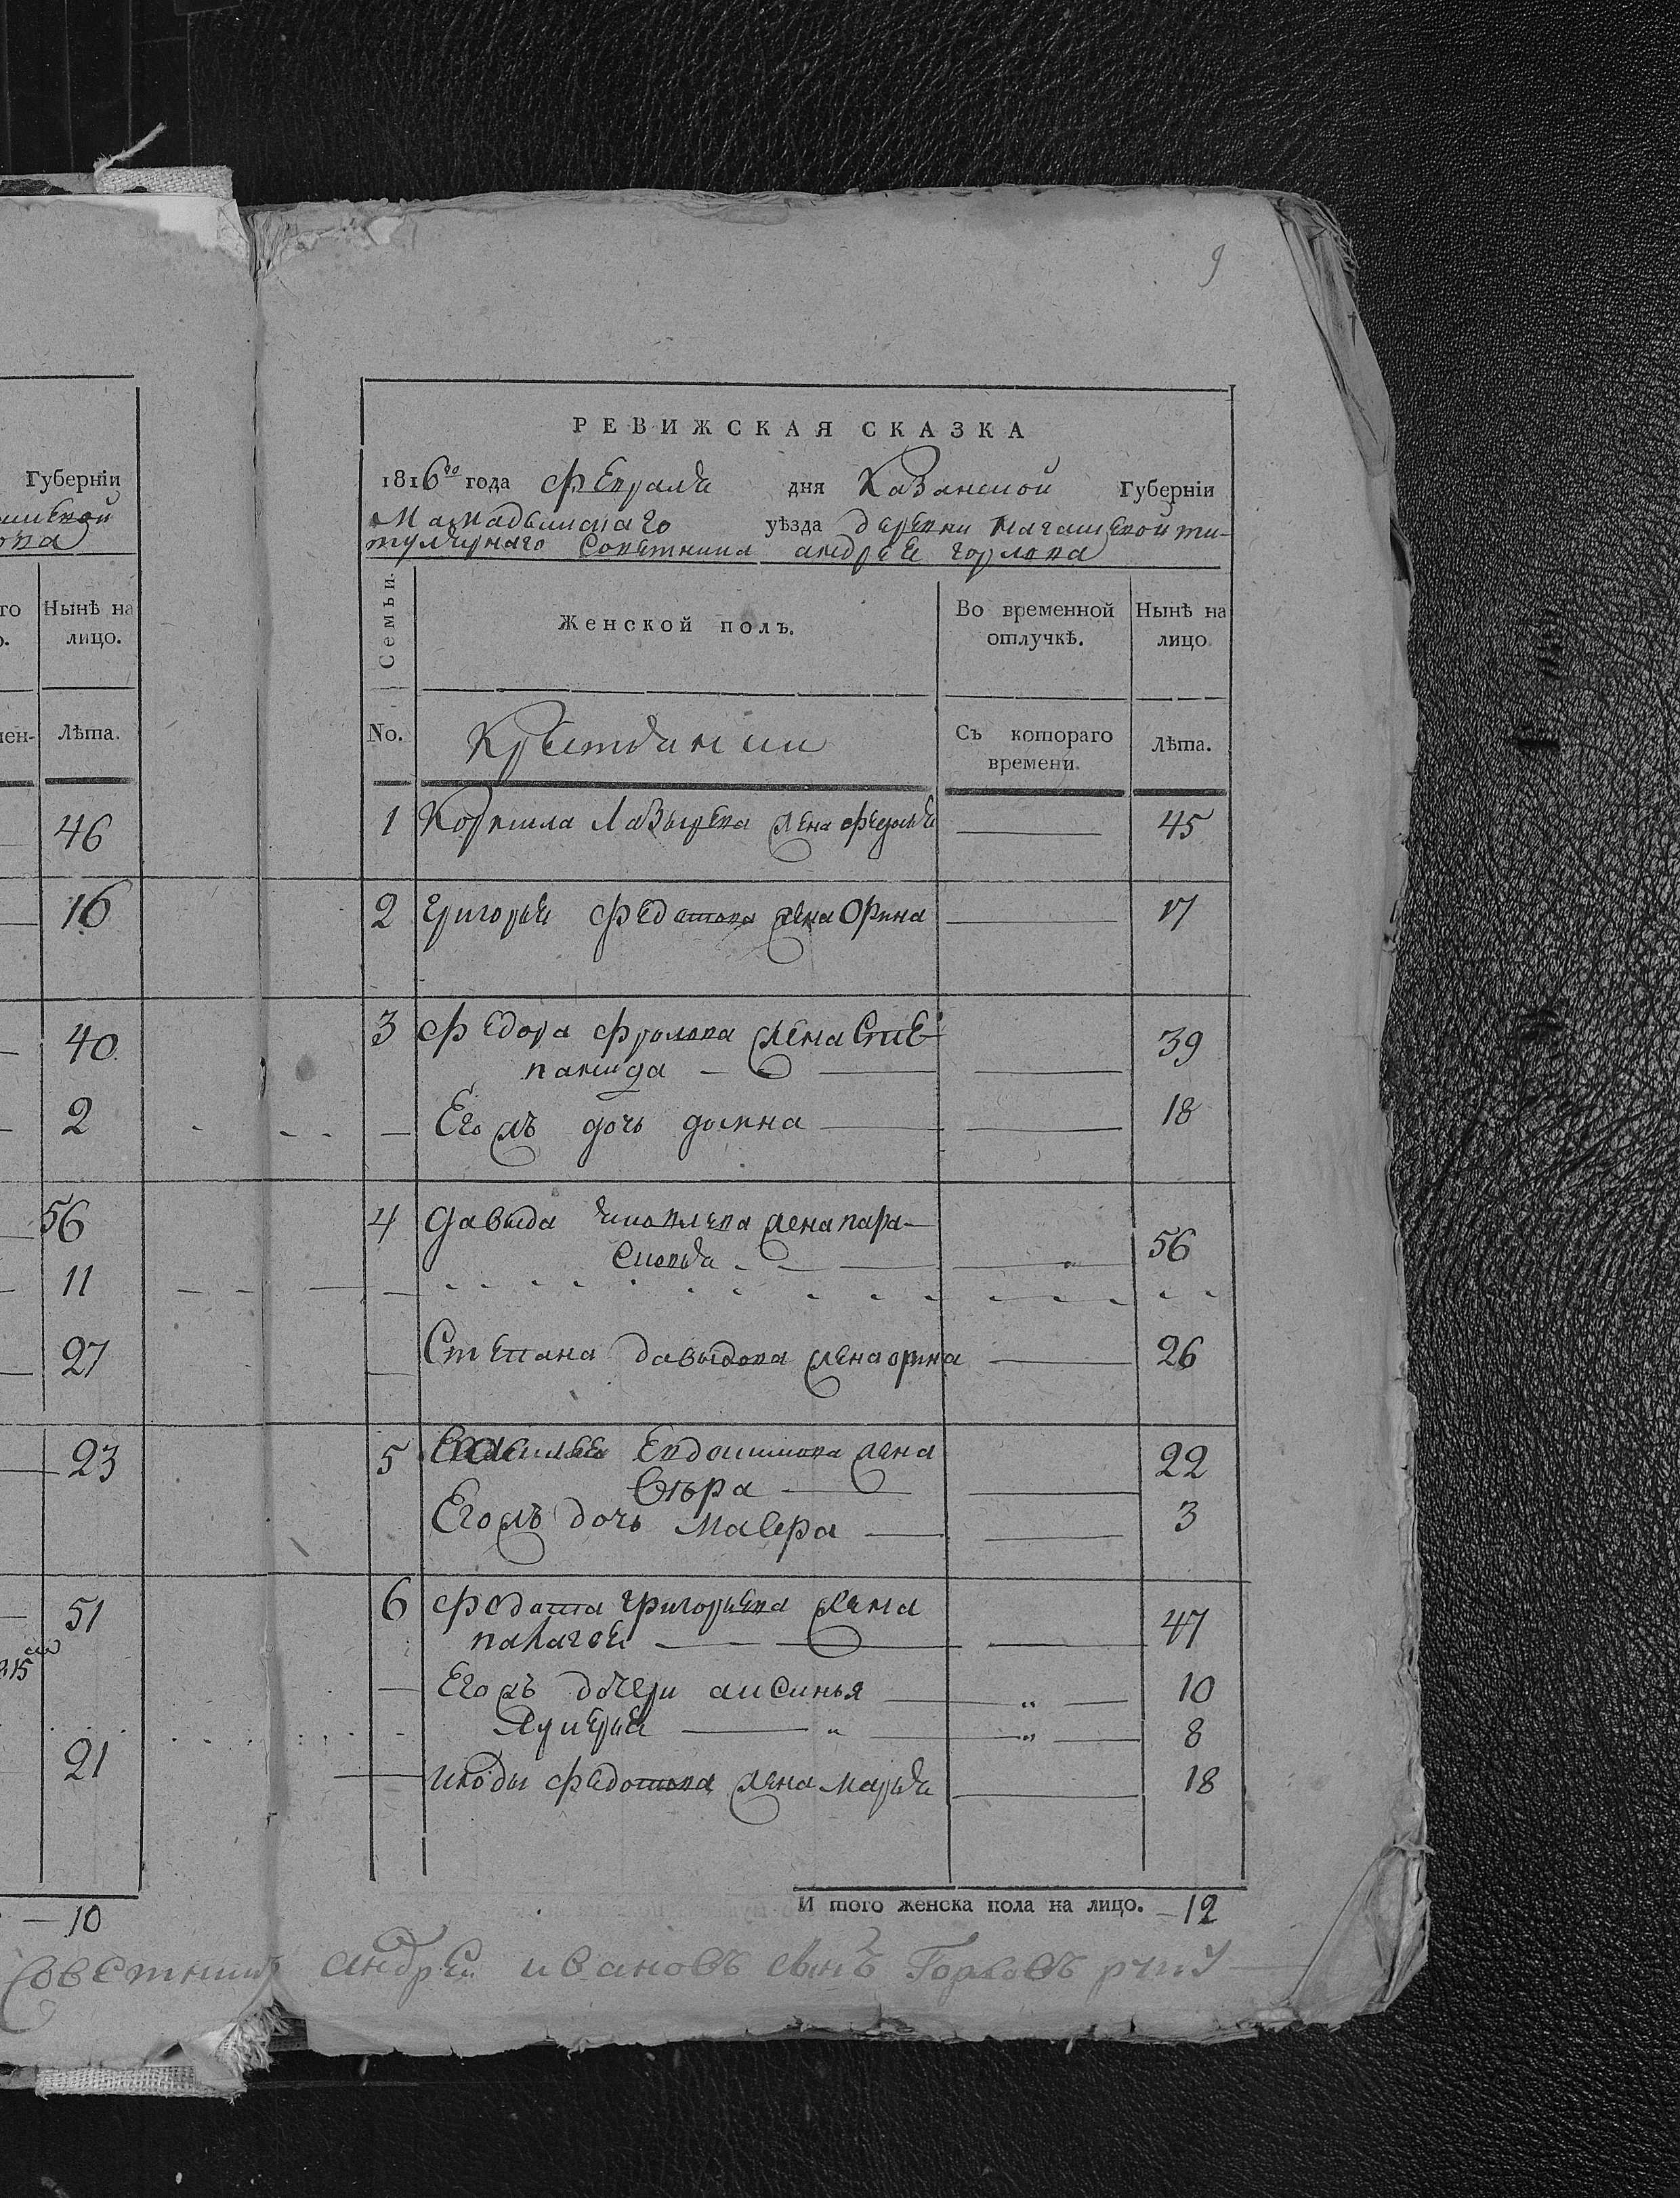 9
Губернїи
РЕВИЖСКАЯ СКАЗКА
1816го года февраля дня Казанской Губернїи
Мамадышскаго уѣзда деревни ти-
тулярнаго Советника андрея горлова
го Нынѣ на лицо.
мен- Лѣта.
Семьи. Женской полъ. Во временной отлучкѣ. Нынѣ на лицо
No. Крестьянки Съ котораго времени. Лѣта.
46
1 Корнила Лазырева жена федосья 45
16
2 григорья федотова жена Орина 17
40
3 федора фролова жена Сте
панида 39
2
Его жъ дочь домна 18
56
4 давыда жена пара-
сковья 56
11
27
Степана давыдова жена орина 26
23
5 Василья Евдокимова жена 22
Вѣра
Егожъ дочь мавра 3
51
6 федота григорьева жена
палагея 47
815
Его жъ дочери аксинья 10
лукерья 8
21
федотова жена марья 18
10
И того женска пола на лицо. 12
Советникъ андрей ивановъ сынъ Горловъ руку